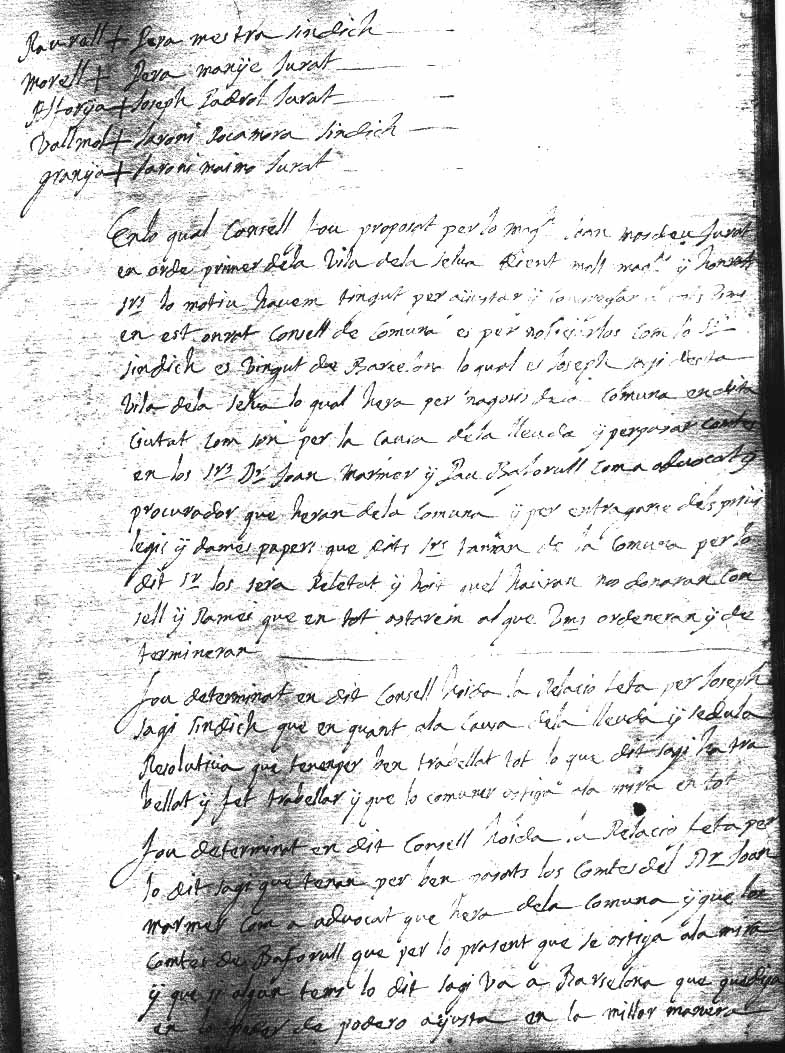 Raurall + Pera mestra sindich
Morell + Pera manye Jurat
Astorga + Joseph Padrol Jurat
Vallmol + Jaroni Rocamora sindich
granya + Jaroni maimo Jurat
En lo qual Consell fou proposat per lo mag.^ch Joan mosdeu Jurat
en orde primer de la Vila de la selva dient molt mag.^chs ÿ honrats
srs lo motiu havem tingut per aiustar ÿ congregar a Vms
en est onrat Consell de Comuna es per noticiarlos com lo Sr
sindich es vingut de Barcelona lo qual es Joseph sagi desta
Vila de la selva lo qual hera per nagosis de la Comuna en dita
Ciutat Com son per la Causa de la lleuda ÿ per pasar Comtes
en los Srs Dr Joan Marmer ÿ Pau Baforull Com a advocat ÿ
procurador que heran de la Comuna ÿ per entragarse dels privi
legis ÿ dames papers que dits srs tanian de la Comuna per lo
dit sr los sera Reletat ÿ hoit quel hauran nos donaran Con
sell ÿ Rames que en tot astarem al que Vms ordeneran ÿ de
termineran
fou determinat en dit Consell hoida la Relacio feta per Joseph
sagi sindich que en quant a la Causa de la lleuda ÿ sedula
Resolutiva que tenen per ben traballat tot lo que dit sagi ha tra
ballat ÿ fet traballar ÿ que lo comuner estiga a la mira en tot
fou determinat en dit Consell hoida la Relacio feta per
lo dit sagi que tenan per ben pasats los Comtes del Dr Joan
marmer Com a advocat que hera de la Comuna ÿ que los
Comtes de Baforull que per lo present que se estiga a la mira
ÿ que si algun tems lo dit sagi va a Barselona que
en de podero aiusta en la millor manera